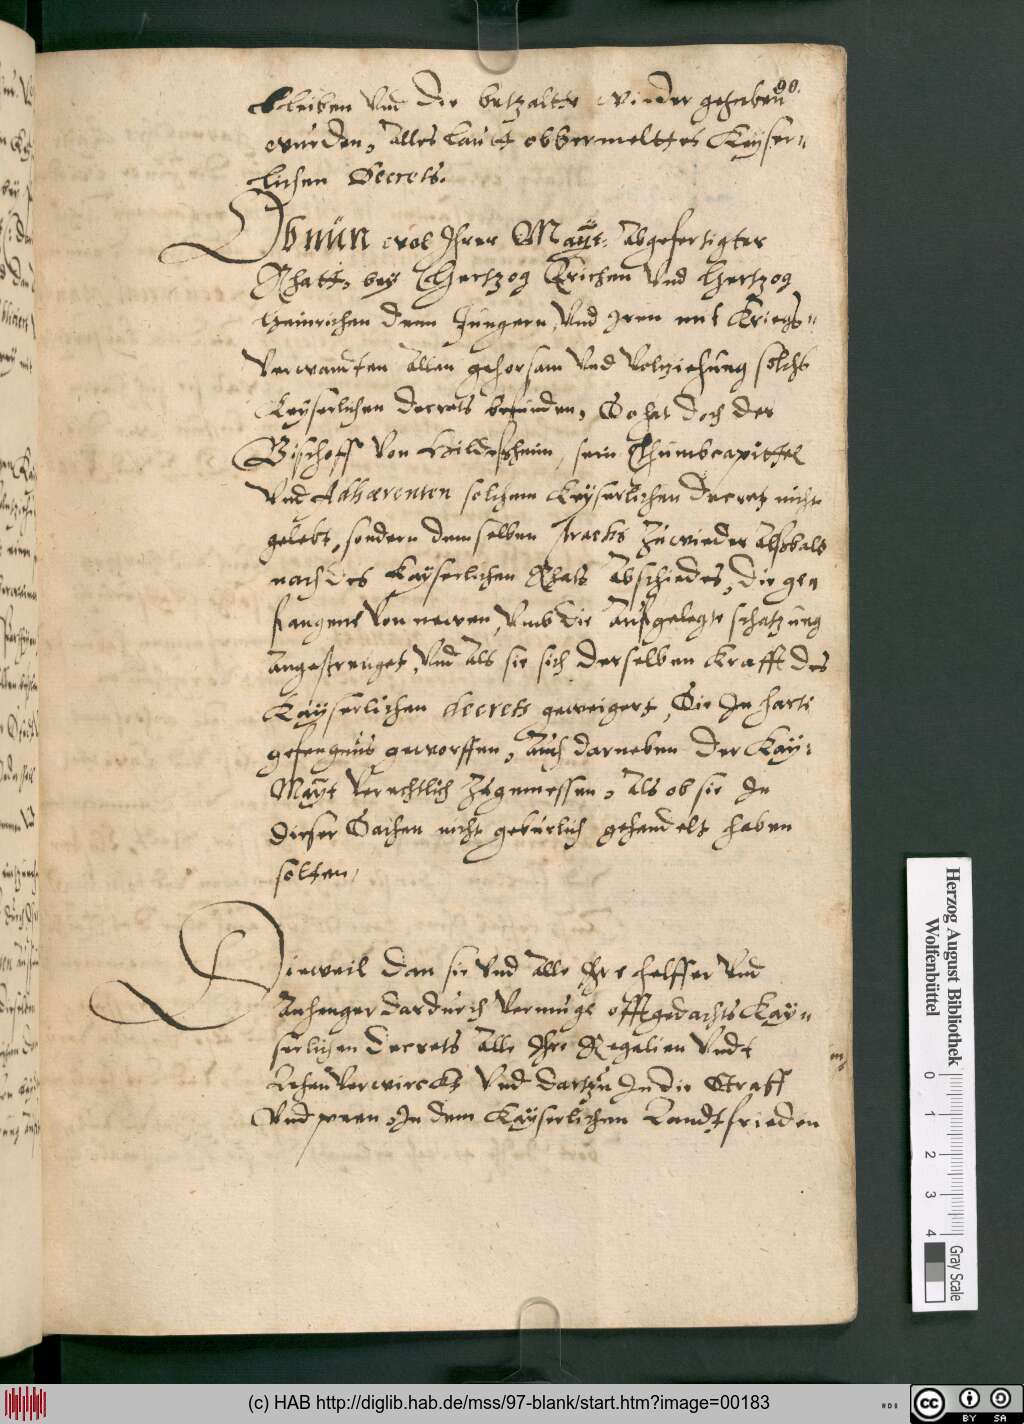 90.
bleiben Vnd die betzaltte wieder gegeben
wurden, Alles lautt obbermelttes Keyser-
lichen Decrets.
Obnün wol Ihrer Maÿt: abgefertigter
Rhatt, bey Hertzog Erichen Vnd Hertzog
Heinrichen dem Jungern, Vnd iren mit Kriegs-
Verwandten allen gehorsam Vnd Volnziehung solchs
Keyserlichen decrets befunden, So hat doch der
Bischoff Von Hildesheim, sein Thumbcapittel
Vnd Adhærenten solchem Keyserlichen Decretz nicht
gelebt, sondern demselben stracks zuwieder Alsbalt
nach des Kayserlichen Rhats Abschiedes, die gen
fangene Von newen, Vmb die Aufgelegte schatzung
angestrenget, Vnd Als sie sich derselben Krafft des
Kayserlichen decrets geweigert, Sie In harte
gefengnus geworffen, Auch darneben Der Kay:
Mayt Verachtlich zugemessen, Als ob sie In
dieser Sachen nicht geburlich gehandelt haben
solten,
Dieweil Dan sie Vnd Alle Ihre helffer Vnd
Anhenger dardurch Vermuge offtgedachts Kay-
serlichen Decrets Alle Ihre Regalien Vndt
Lehen Verwirckt Vnd dartzu In die Straff
Vnd peen, In dem Kayserlichen Landtfrieden
Herzog August Bibliothek
Wolfenbüttel
0 1 2 3 4
Gray Scale
(c) HAB http://diglib.hab.de/mss/97-blank/start.htm?image=00183
cc BY SA